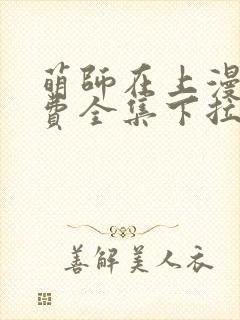 萌師在上漫
費全集下拉
善解美人衣